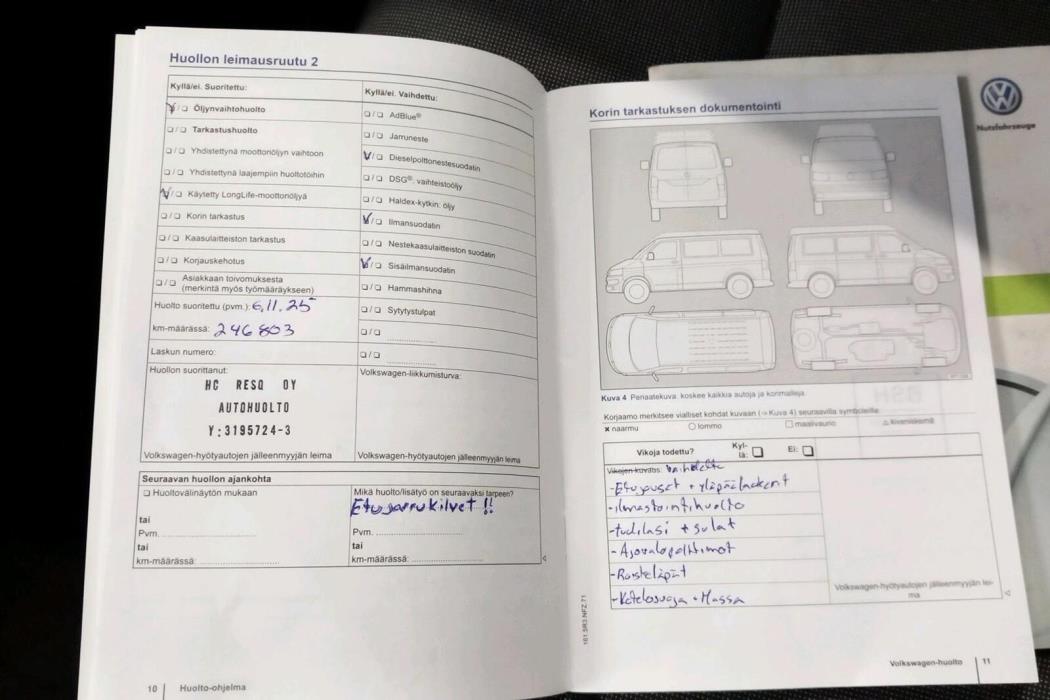 Huollon leimausruutu 2
Kyllä/ei. Suoritettu:
❑/❑ Öljynvaihtohuolto
❑/❑ Tarkastushuolto
❑/❑ Yhdistettynä moottoriöljyn vaihtoon
❑/❑ Yhdistettynä laajempiin huoltotöihin
❑/❑ Käytetty LongLife-moottoriöljyä
❑/❑ Korin tarkastus
❑/❑ Kaasulaitteiston tarkastus
❑/❑ Korjauskehotus
❑/❑ Asiakkaan toivomuksesta
(merkintä myös työmääräykseen)
Huolto suoritettu (pvm.): 6.11.25
km-määrässä: 246 803
Laskun numero:
Huollon suorittanut:
HC RESQ OY
AUTOHUOLTO
Y:3195724-3
Volkswagen-hyötyautojen jälleenmyyjän leima
Kyllä/ei. Vaihdettu:
❑/❑ AdBlue®
❑/❑ Jarruneste
❑/❑ Dieselpolttonestesuodatin
❑/❑ DSG®: vaihteistoöljy
❑/❑ Haldex-kytkin: öljy
❑/❑ Ilmansuodatin
❑/❑ Nestekaasulaitteiston suodatin
❑/❑ Sisäilmansuodatin
❑/❑ Hammashihna
❑/❑ Sytytystulpat
❑/❑
❑/❑
Volkswagen-liikkumisturva:
Volkswagen-hyötyautojen jälleenmyyjän leima
Seuraavan huollon ajankohta
❑ Huoltovälinäytön mukaan
tai
Pvm.
tai
km-määrässä:
Mikä huolto/lisätyö on seuraavaksi tarpeen?
Etujarrukilvet !!
Pvm.
tai
km-määrässä:
10 Huolto-ohjelma
Korin tarkastuksen dokumentointi
Kuva 4 Periaatekuva: koskee kaikkia autoja ja korimalleja.
Korjaamo merkitsee vialliset kohdat kuvaan (→ Kuva 4) seuraavilla symboleilla:
× naarmu ○ lommo ☐ maalivaurio △ kiveniskemä
Vikoja todettu? Kyl-
lä: ❑ Ei: ❑
Vikojen kuvaus: Vaihdettu
- Etupuset + yläpäälaakerit
- ilmastointihuolto
- tuulilasi + sulat
- Ajovalopolttimot
- Roiskeläpät
- Kotelosuoja + Massa
Volkswagen-hyötyautojen jälleenmyyjän lei-
ma
161.5R3.NFZ.71
Volkswagen-huolto 11
Nutzfahrzeuge